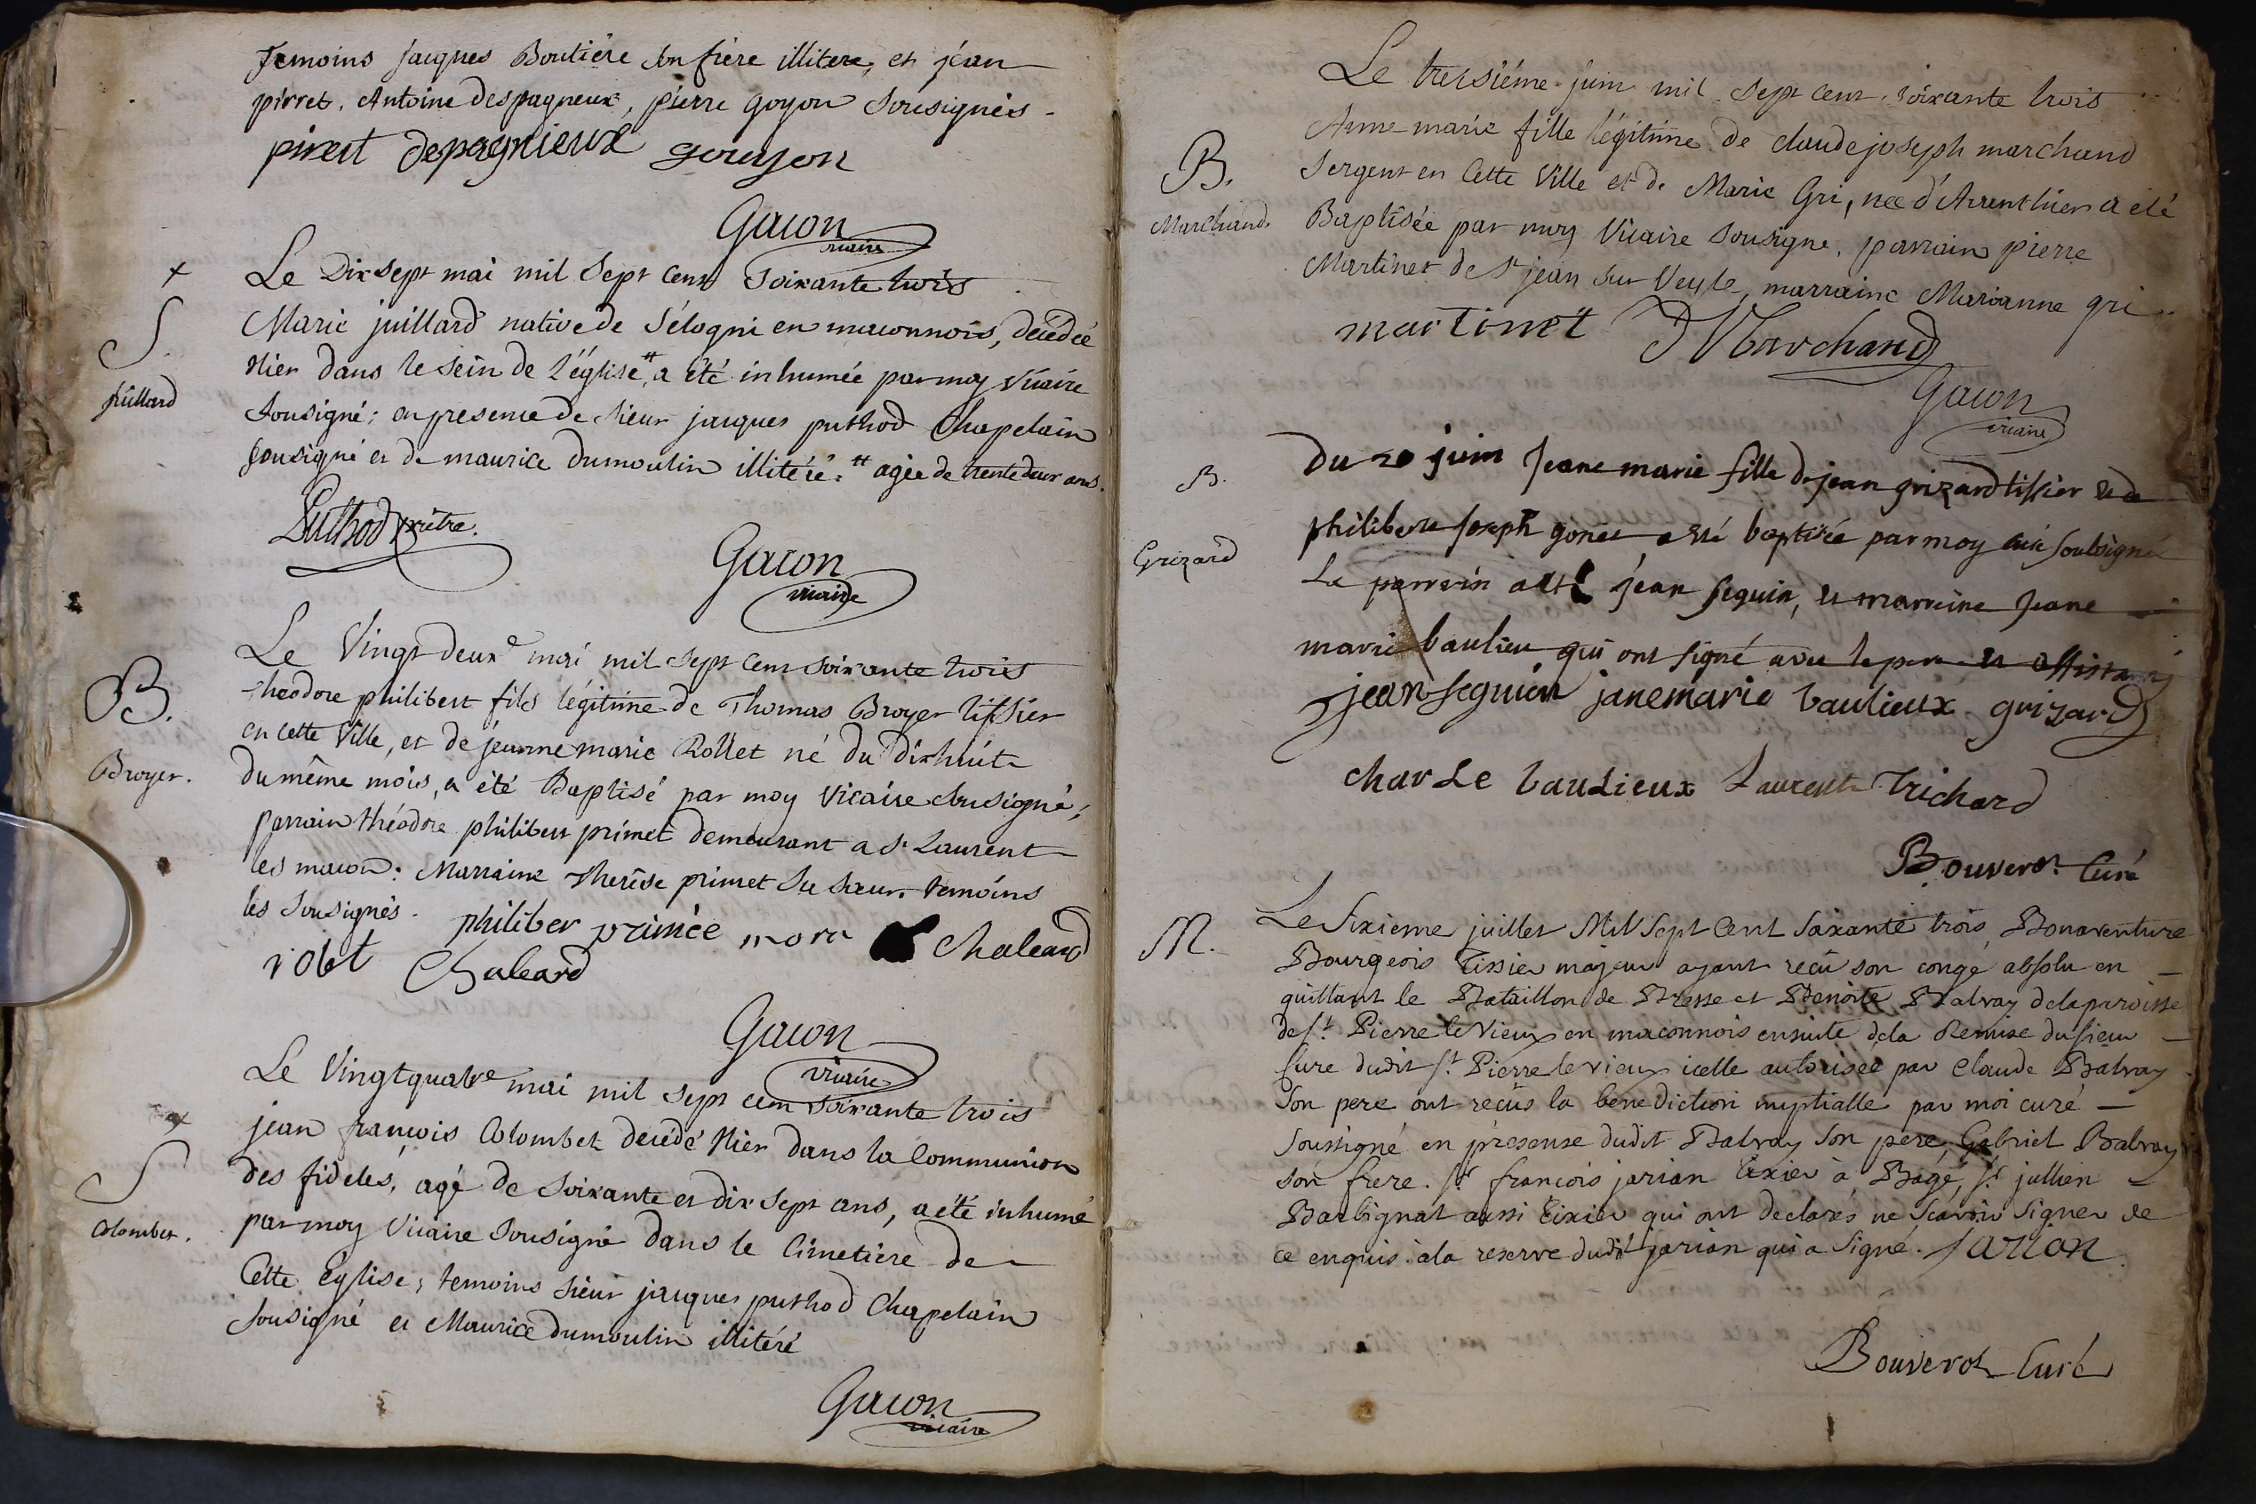 temoins jacques Boutiére son frère illitere, et jéan
pirret, Antoine despagneux, pierre goyon sousignés
pirert depagnieux goujon
Gacon
vicaire
+
S.
juillard
Le Dix sept mai mil sept cent soixante trois
Marie juillard native de sélogni en maconnois, décédée
hier dans le sein de l'église ⌗ a été inhumée par moy vicaire
sousigné; en presence de sieur jacques puthod Chapelain
sousigné et de maurice dumoulin illitéré. ⌗ agée de trente deux ans.
Puthod prêtre.
Gacon
vicaire
B.
Broyer.
Le Vingt deuxe mai mil sept cent soixante trois
théodore philibert fils légitime de Thomas Broyer tissier
en cette Ville, et de jeanne marie Rollet né du dixhuit
du même mois, a été Baptisé par moy Vicaire sousigné;
parrain théodore philibert primet demeurant a st Laurent
les macon: Marraine therèse primet sa sœur. temoins
les sousignés.
philiber primée
chaleard
rolet Chaleard
Gacon
vicaire
+
S
Colombet.
Le Vingtquatre mai mil sept cent soixante trois
jean francois Colombet decédé hier dans la Communion
des fideles, agé de soixante et dix sept ans, a été inhumé
par moy Vicaire sousigné dans le Cimetiere de
Cette église; temoins sieur jacques puthod Chapelain
sousigné et Maurice dumoulin illitéré
Gacon
vicaire
B.
Marchand.
Le treisiéme juin mil sept cent soixante trois
Anne marie fille légitime de claude joseph marchand
sergent en Cette Ville et de Marie Gri, née d'Avrenthier a été
Baptisée par moy Vicaire sousigné, parrain pierre
Martinet de st jean sur Veyle, marraine Marianne gri
martinet Marchand
Gacon
vicaire
B.
Grizard
Du 20 juin Jeane marie fille de jean grizard tissier et de
philiberte joseph gonet a été baptisée par moy curé soubsigné
Le parrain a été jean seguin, et marraine Jeane
marie baulieu qui ont signé avec le pere et assistans
jean seguin janemarie baulieux grizard
charle baulieux Laurent trichard
Bouverot Curé
M.
Le sixieme juillet Mil sept Cent soixante trois Bonaventure
Bourgeois Tissier majeur ayant reçû son congé absolu en
quittant le Bataillon de Bresse et Benoite Balvay de la paroisse
de st. Pierre le Vieux en maconnois ensuite de la Remise du sieur
Cure dudit st. Pierre le vieux icelle autorisée par Claude Balvay
son pere ont reçûs la bénédiction nuptialle par moi curé
soussigné en présense dudit Balvay son pere, Gabriel Balvay
son frere. sr. francois jarian tixier à Bagé, sr. jullien
Barbignat aussi tixier qui ont declarés ne scavoir signer de
ce enquis à la reserve dudit jarian qui a signé. jarion
Bouverot Curé